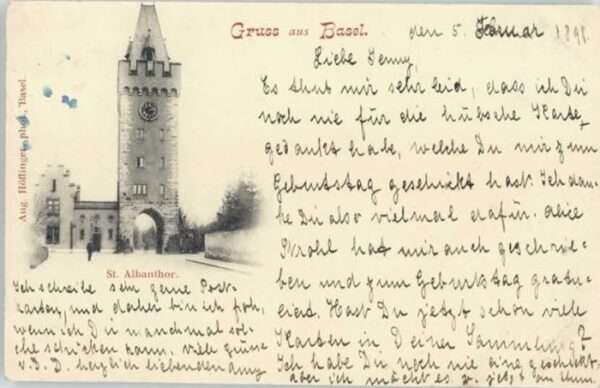 Gruss aus Basel.
den 5. Februar 1898
Liebe Jenny,
Es thut mir sehr leid, dass ich Dir
noch nie für die hübsche Karte
gedankt habe, welche Du mir zum
Geburtstag geschickt hast. Ich dan-
ke Dir also vielmal dafür. Alice
Krohl hat mir auch geschrie-
ben und zum Geburtstag gratu-
liert. Hast Du jetzt schon viele
Karten in Deiner Sammlung?
Ich habe Dir noch nie eine geschickt,
aber ich möchte es jetzt
Aug. Höflinger, phot., Basel.
St. Albanthor.
Ich schreibe sehr gerne Post-
karten, und daher bin ich froh,
wenn ich Dir manchmal sol-
che schicken kann. Viele Grüsse
v. D. herzlich liebenden